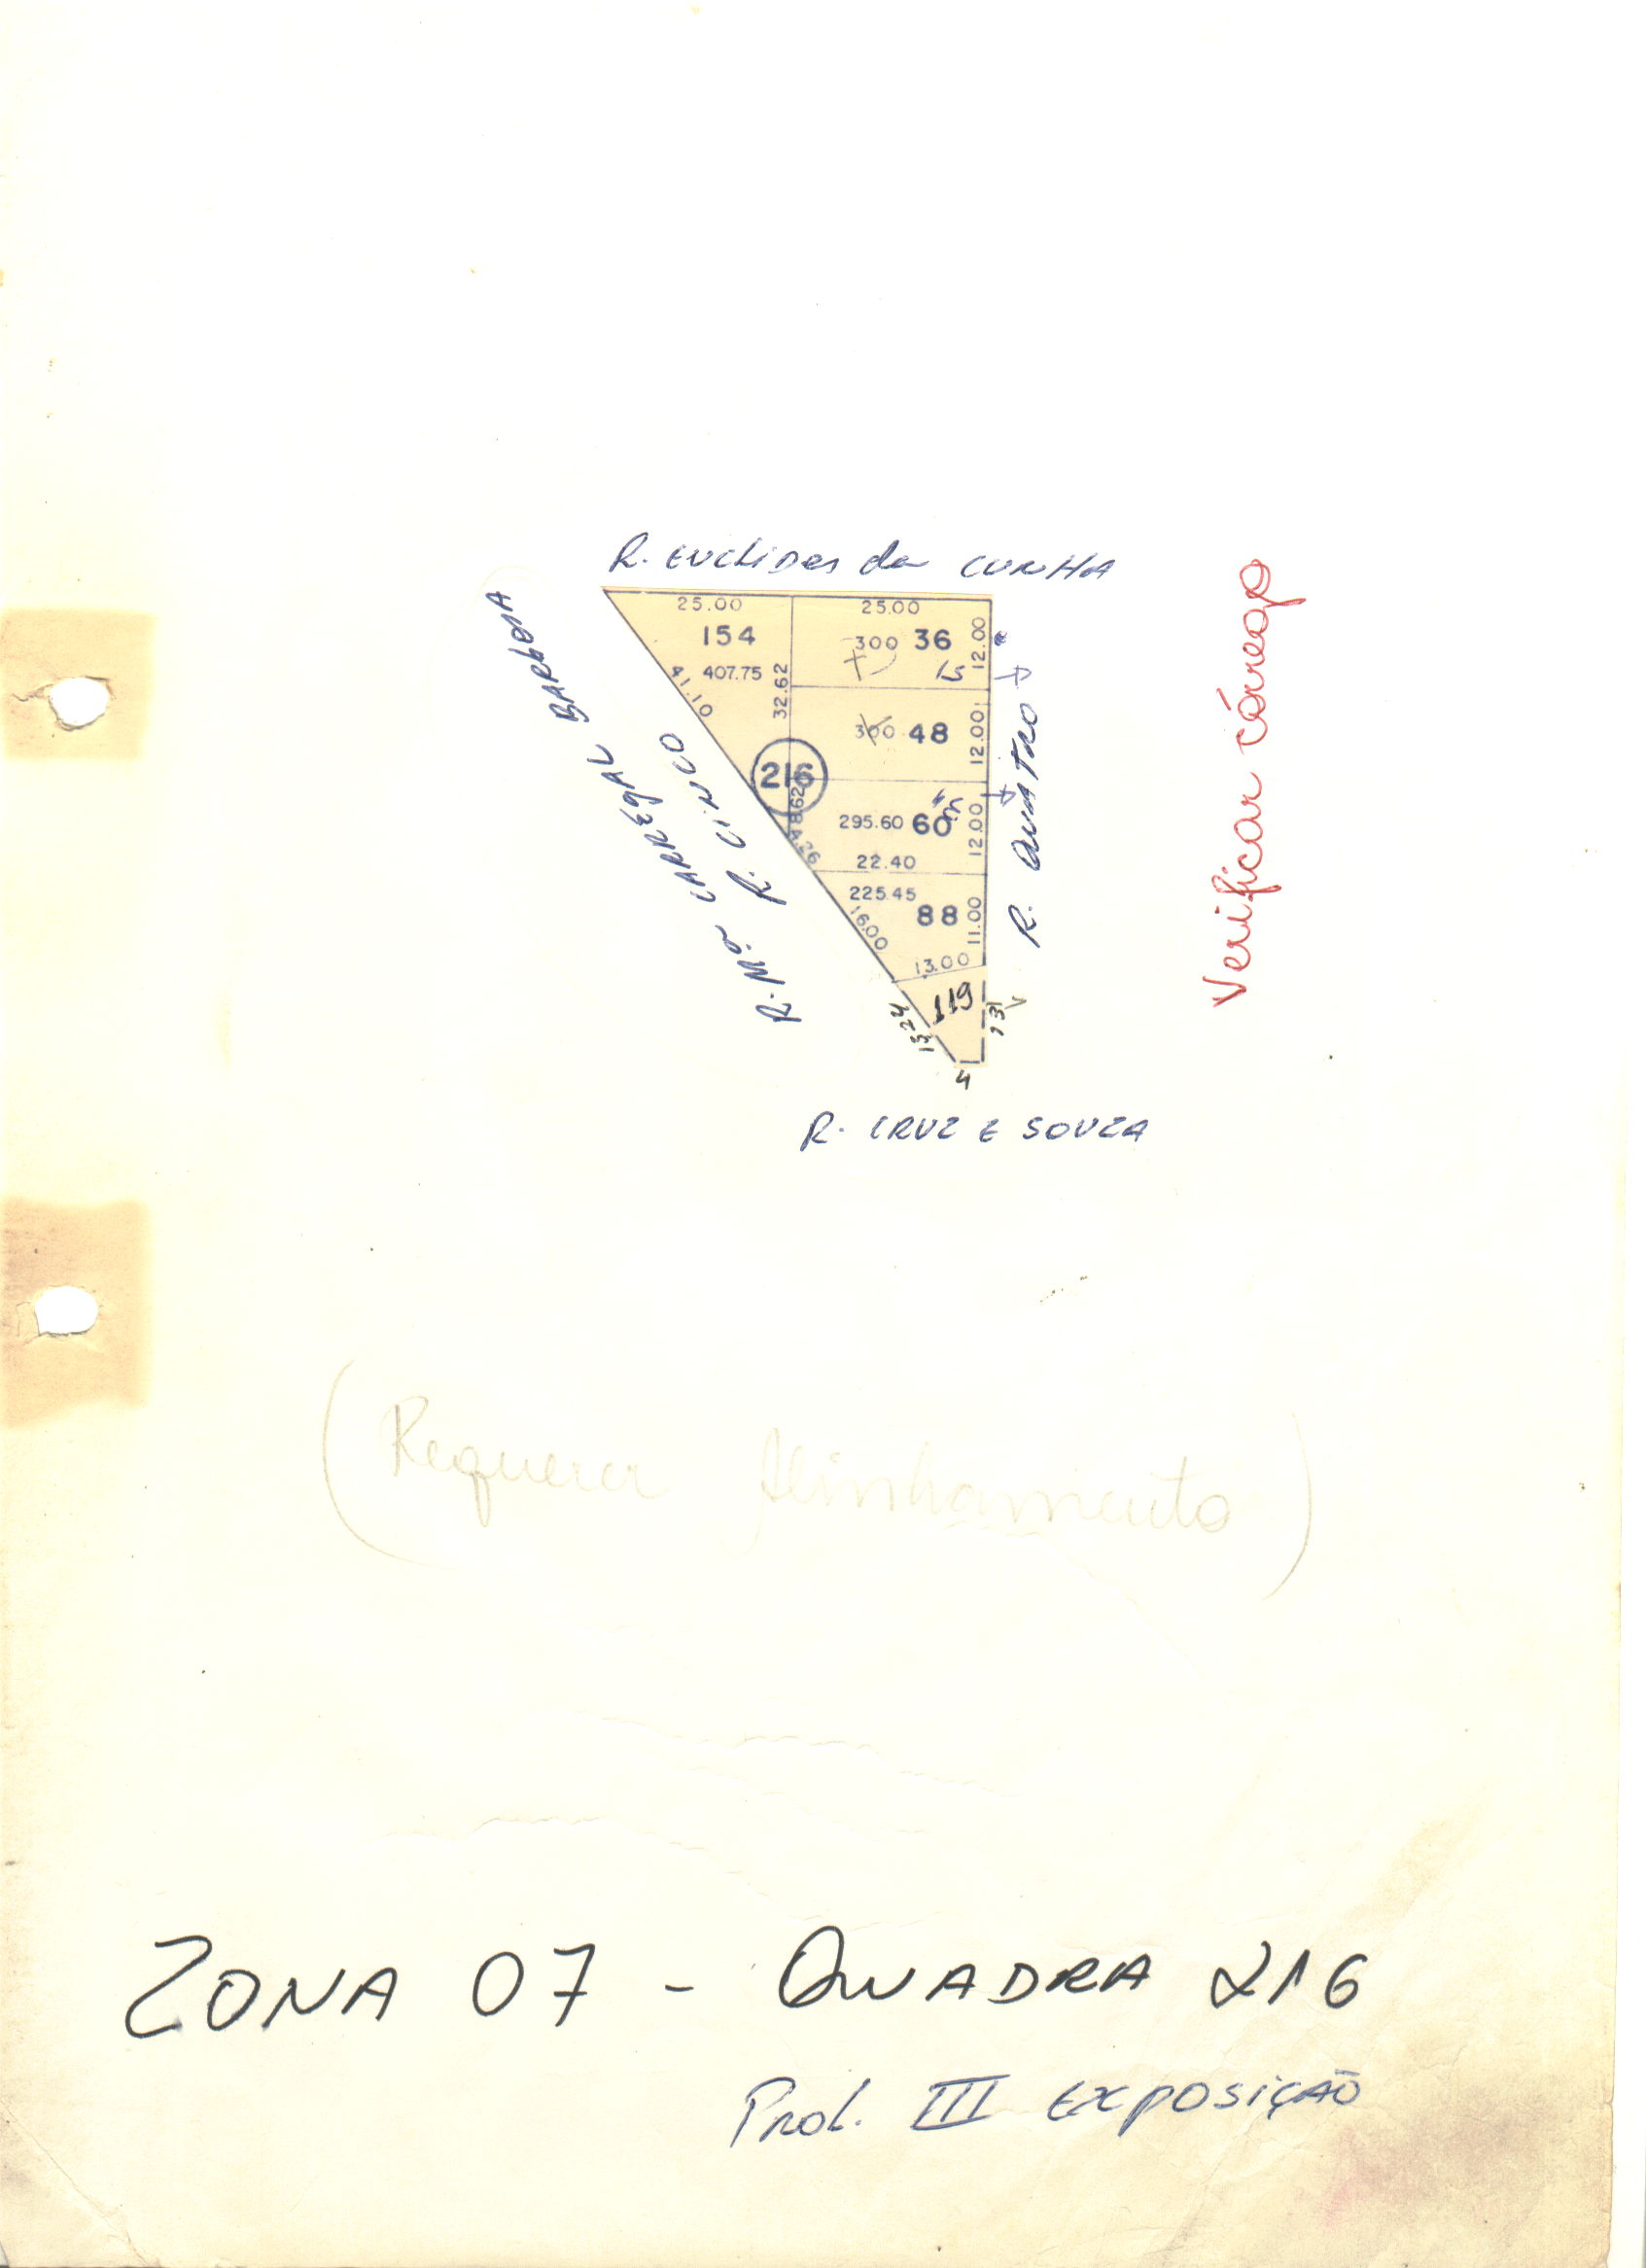 R. EUCLIDES da CUNHA
R. Mº CARREGAL BARBOSA
R. CINCO
25.00
25.00
154
300 36
12.00
407.75
41.10
32.62
300 48
12.00
216
8.62
4.26
295.60 60
12.00
22.40
225.45
88
16.00
11.00
13.00
119
13.24
13
4
R. QUATRO
Verificar córrego
R. CRUZ E SOUZA
(Requerer Alinhamento)
ZONA 07 - QUADRA 216
Prol. III EXPOSIÇÃO